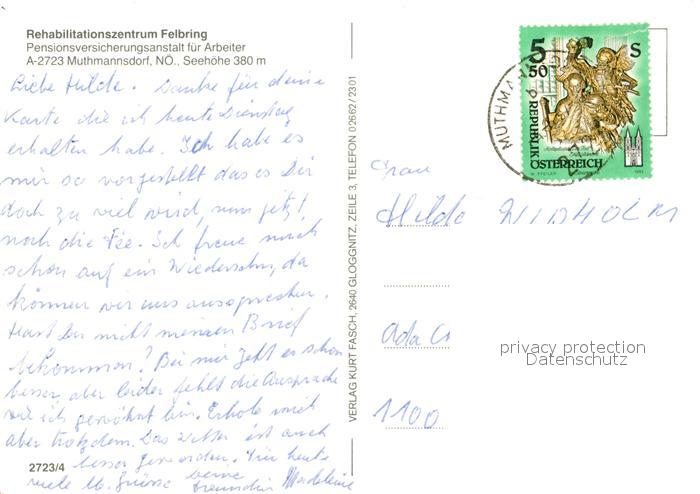 Rehabilitationszentrum Felbring
Pensionsversicherungsanstalt für Arbeiter
A-2723 Muthmannsdorf, NÖ., Seehöhe 380 m
Liebe Hilde. Danke für deine
Karte die ich heute Dienstag
erhalten habe. Ich habe es
mir so vorgestellt das es Dir
doch zu viel wird, nun jetzt
noch die Fee. Ich freue mich
schon auf ein Wiedersehn, da
können wir uns aussprechen.
Hast du nicht meinen Brief
bekommen? Bei mir geht es schon
besser, aber leider fehlt die Aussprache
wie ich gewöhnt bin. Erhole mich
aber trotzdem. Das Wetter ist auch
besser geworden. Für heute
viele lb. Grüsse deine
Freundin Madeleine
2723/4
VERLAG KURT FASCH, 2640 GLOGGNITZ, ZEILE 3, TELEFON 0 26 62 / 23 01
MUTHMA
5 50 S
REPUBLIK
ÖSTERREICH
Frau
Hilde WIDHOLM
Ada Ch
1100
privacy protection
Datenschutz